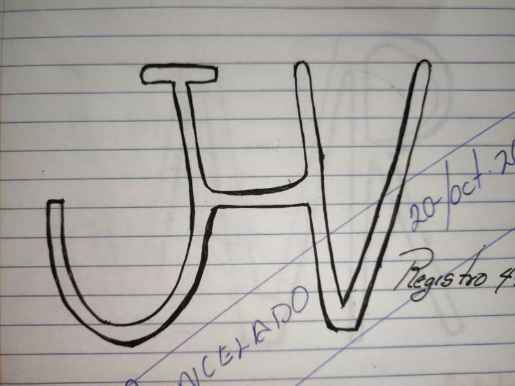 JHV
20/oct.20
Registro 4
NCELADO